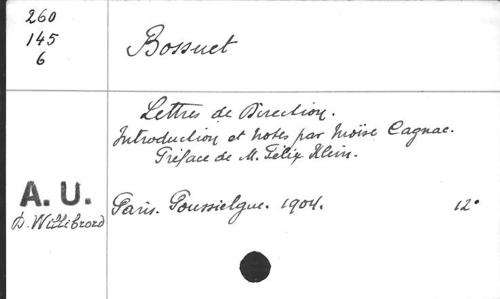 260
145
6
Bossuet
Lettres de Direction.
Introduction et notes par Moïse Cagnac.
Préface de M. Félix Klein.
A. U.
D. Willibrord
Paris. Poussielgue. 1904. 12°